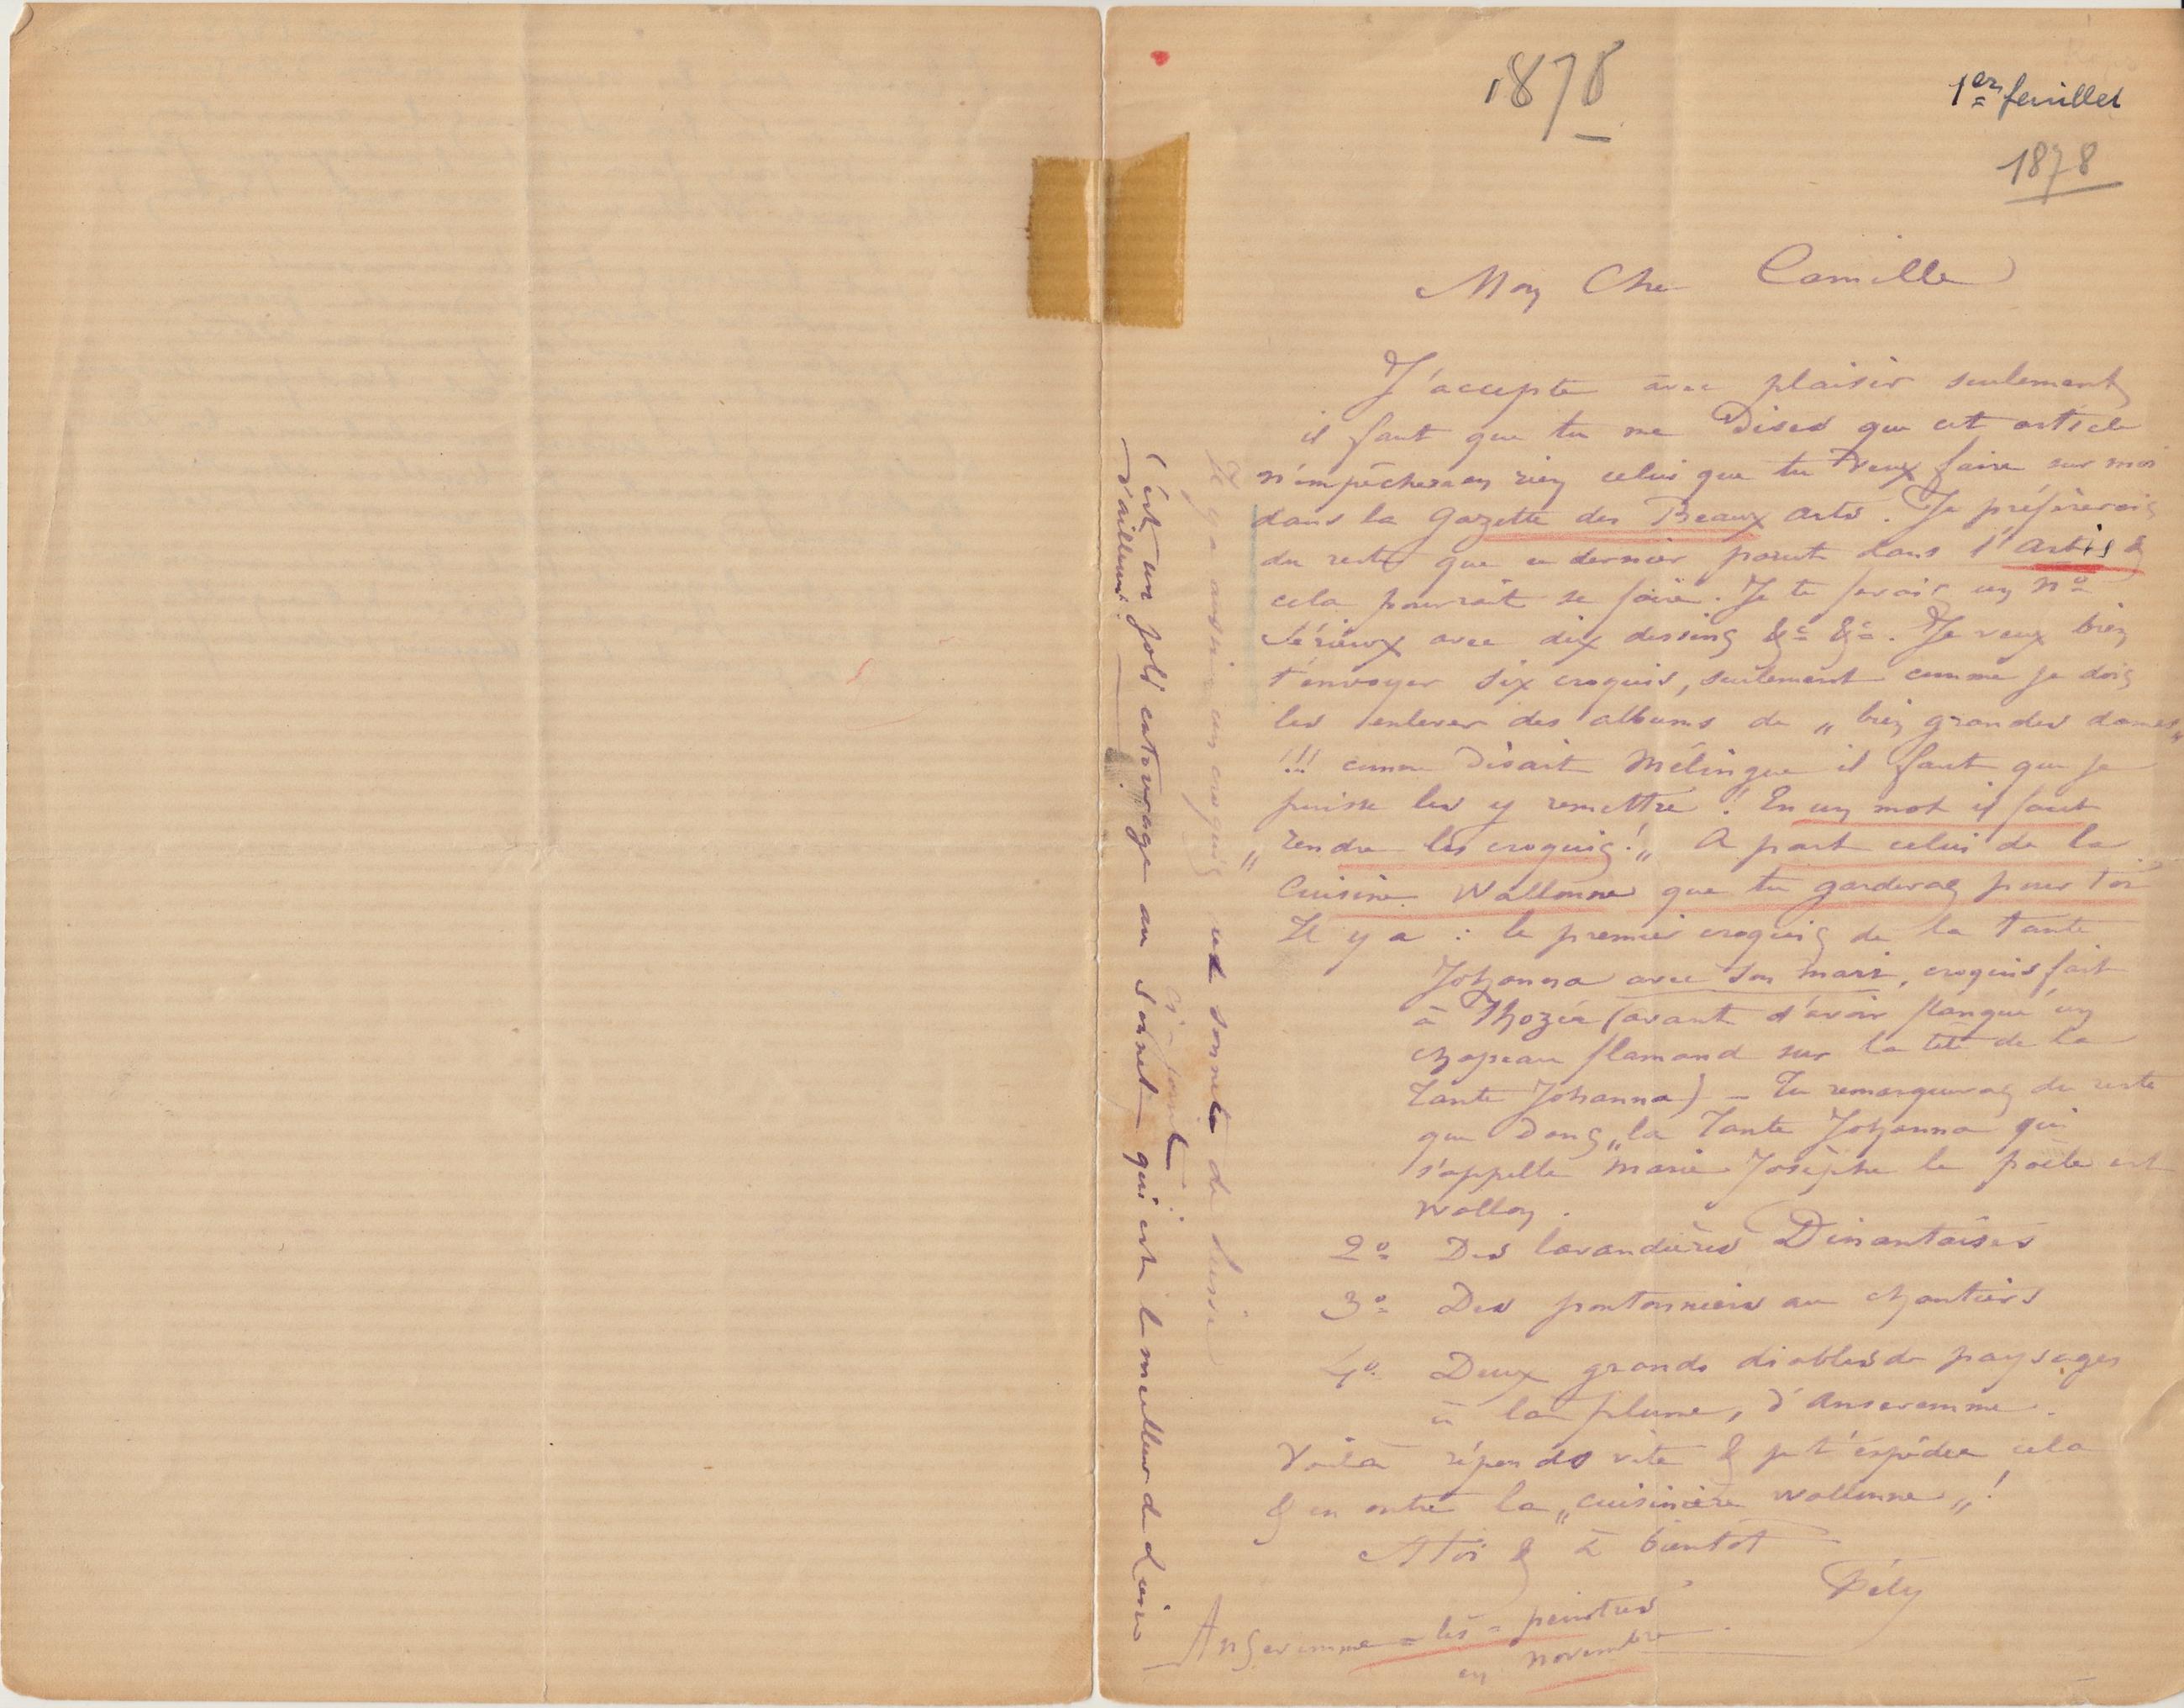 1878
1er feuillet
1878
Mon Cher Camille
J'accepte avec plaisir seulement
il faut que tu me Dises que cet article
n'empêchera en rien celui que tu veux faire sur moi
dans la Gazette des Beaux arts. Je préfèrerais
du reste que ce dernier parut dans l'Artiste
cela pourrait se faire. Je te ferais un No
Sérieux avec dix dessins &a &a. Je veux bien
t'envoyer six croquis, seulement comme je dois
les enlever des albums de „ bien grandes dames „
!!! comme Disait Mélingue il faut que je
puisse les y remettre ! En un mot il faut
„ rendre les croquis ! „ A part celui de la
Cuisine Wallonne que tu garderas pour toi
Il y a : le premier croquis de la tante
Johanna avec son mari, croquis fait
à Thozée (avant d'avoir flanqué un
chapeau flamand sur la tête de la
Tante Johanna) – Tu remarqueras du reste
que Dans „ la Tante Johanna qui
s'appelle Marie-Josèphe le poële est
Wallon.
2o Des lavandières Dinantaises
3o Des pontonniers au chantiers
4o Deux grands diables de paysages
à la plume, d'Anseremme.
Voilà réponds vite & je t'expédie cela
& en outre la „ cuisinière wallonne „ !
A toi & à bientôt
Fély
Anseremme = les = peintres
en novembre
Il y a aussi un croquis sonnets de
C'est un joli entourage au sonnet qui est le meilleur de
d'ailleurs.